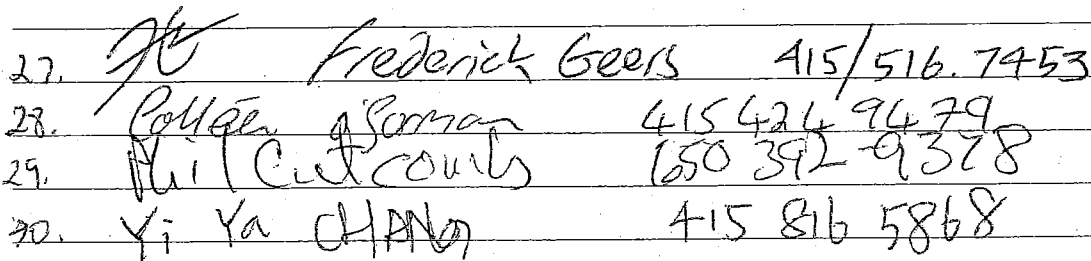 27. Frederick Geers 415/516.7453
28. Colleen Gorman 415 424 9479
29. Phil 650 392-9378
30. Yi Ya CHANG 415 816 5868